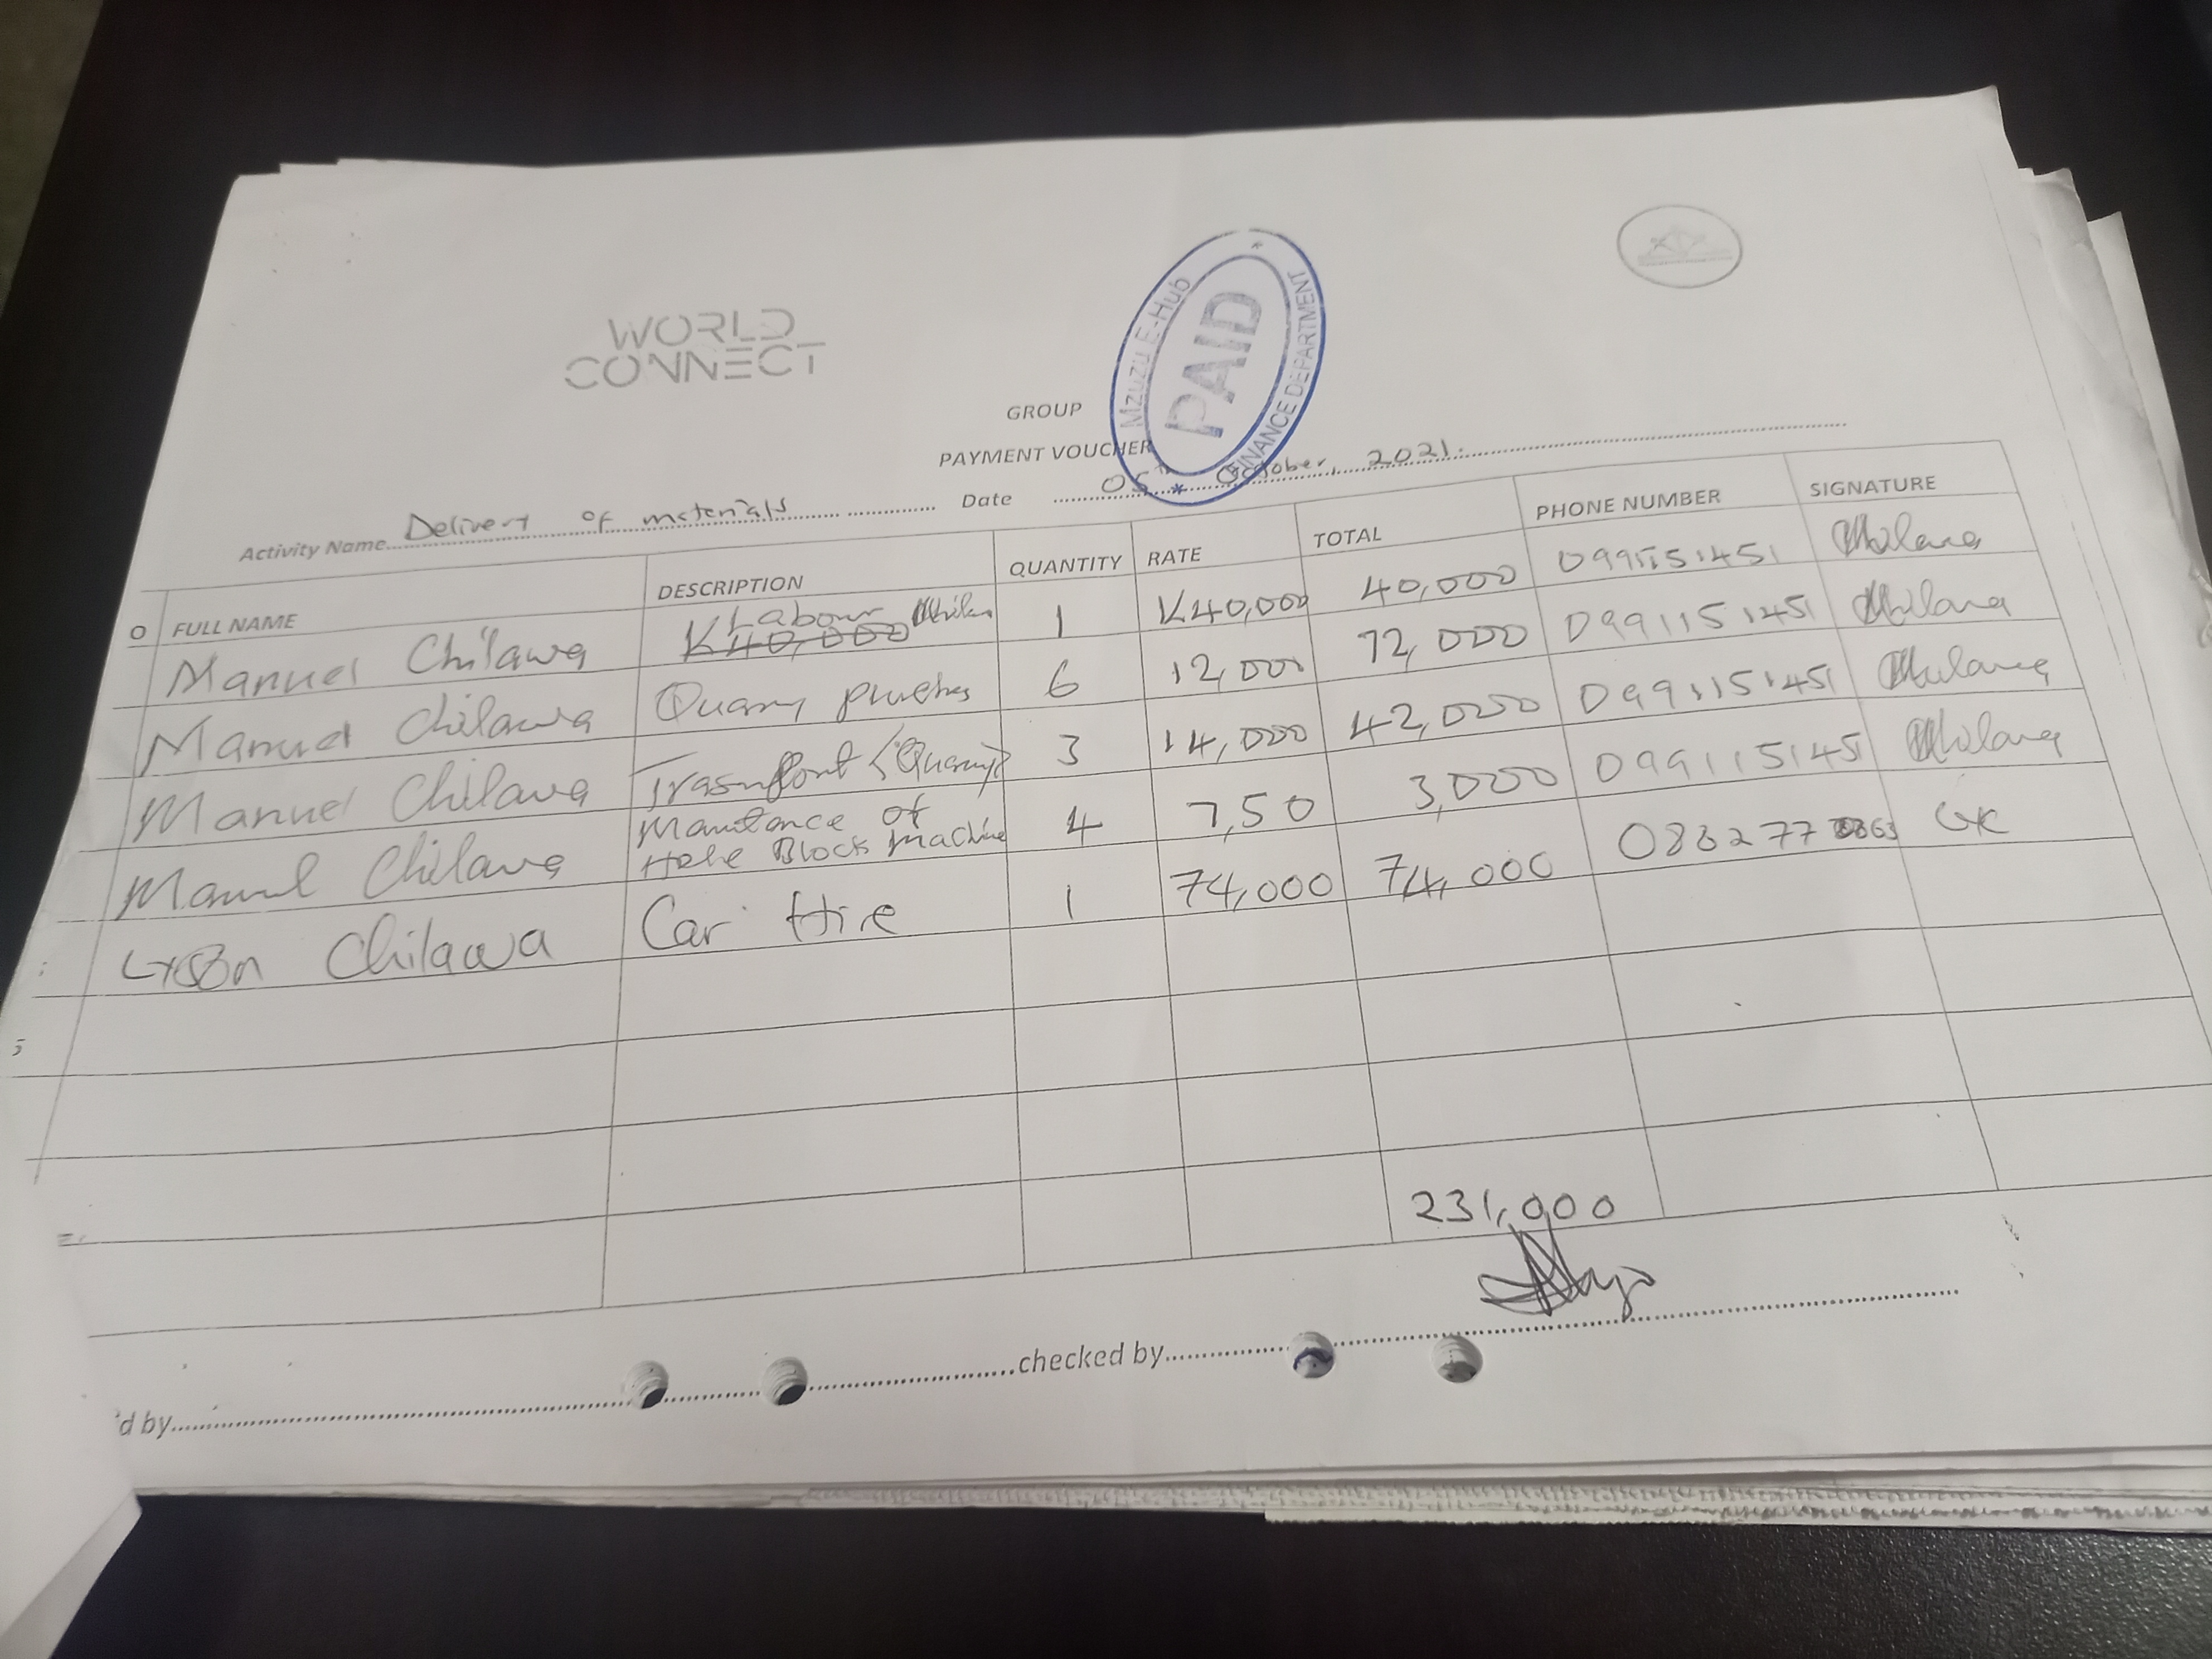 WORLD
CONNECT
Mzuzu E-Hub
PAID
FINANCE DEPARTMENT
GROUP
PAYMENT VOUCHER
Activity Name Delivery of materials Date 05th October, 2021.
O FULL NAME DESCRIPTION QUANTITY RATE TOTAL PHONE NUMBER SIGNATURE
Manuel Chilawa Labour K40,000 1 K40,000 40,000 0991151451
Manuel Chilawa Quarry 6 12,000 72,000 0991151451
Manuel Chilawa Trasnport (Quarry) 3 14,000 42,000 0991151451
Manuel Chilawa Maintance of Block Machine 4 7,50 3,000 099115145
Chilawa Car Hire 1 74,000 74,000
231,000
'd by checked by